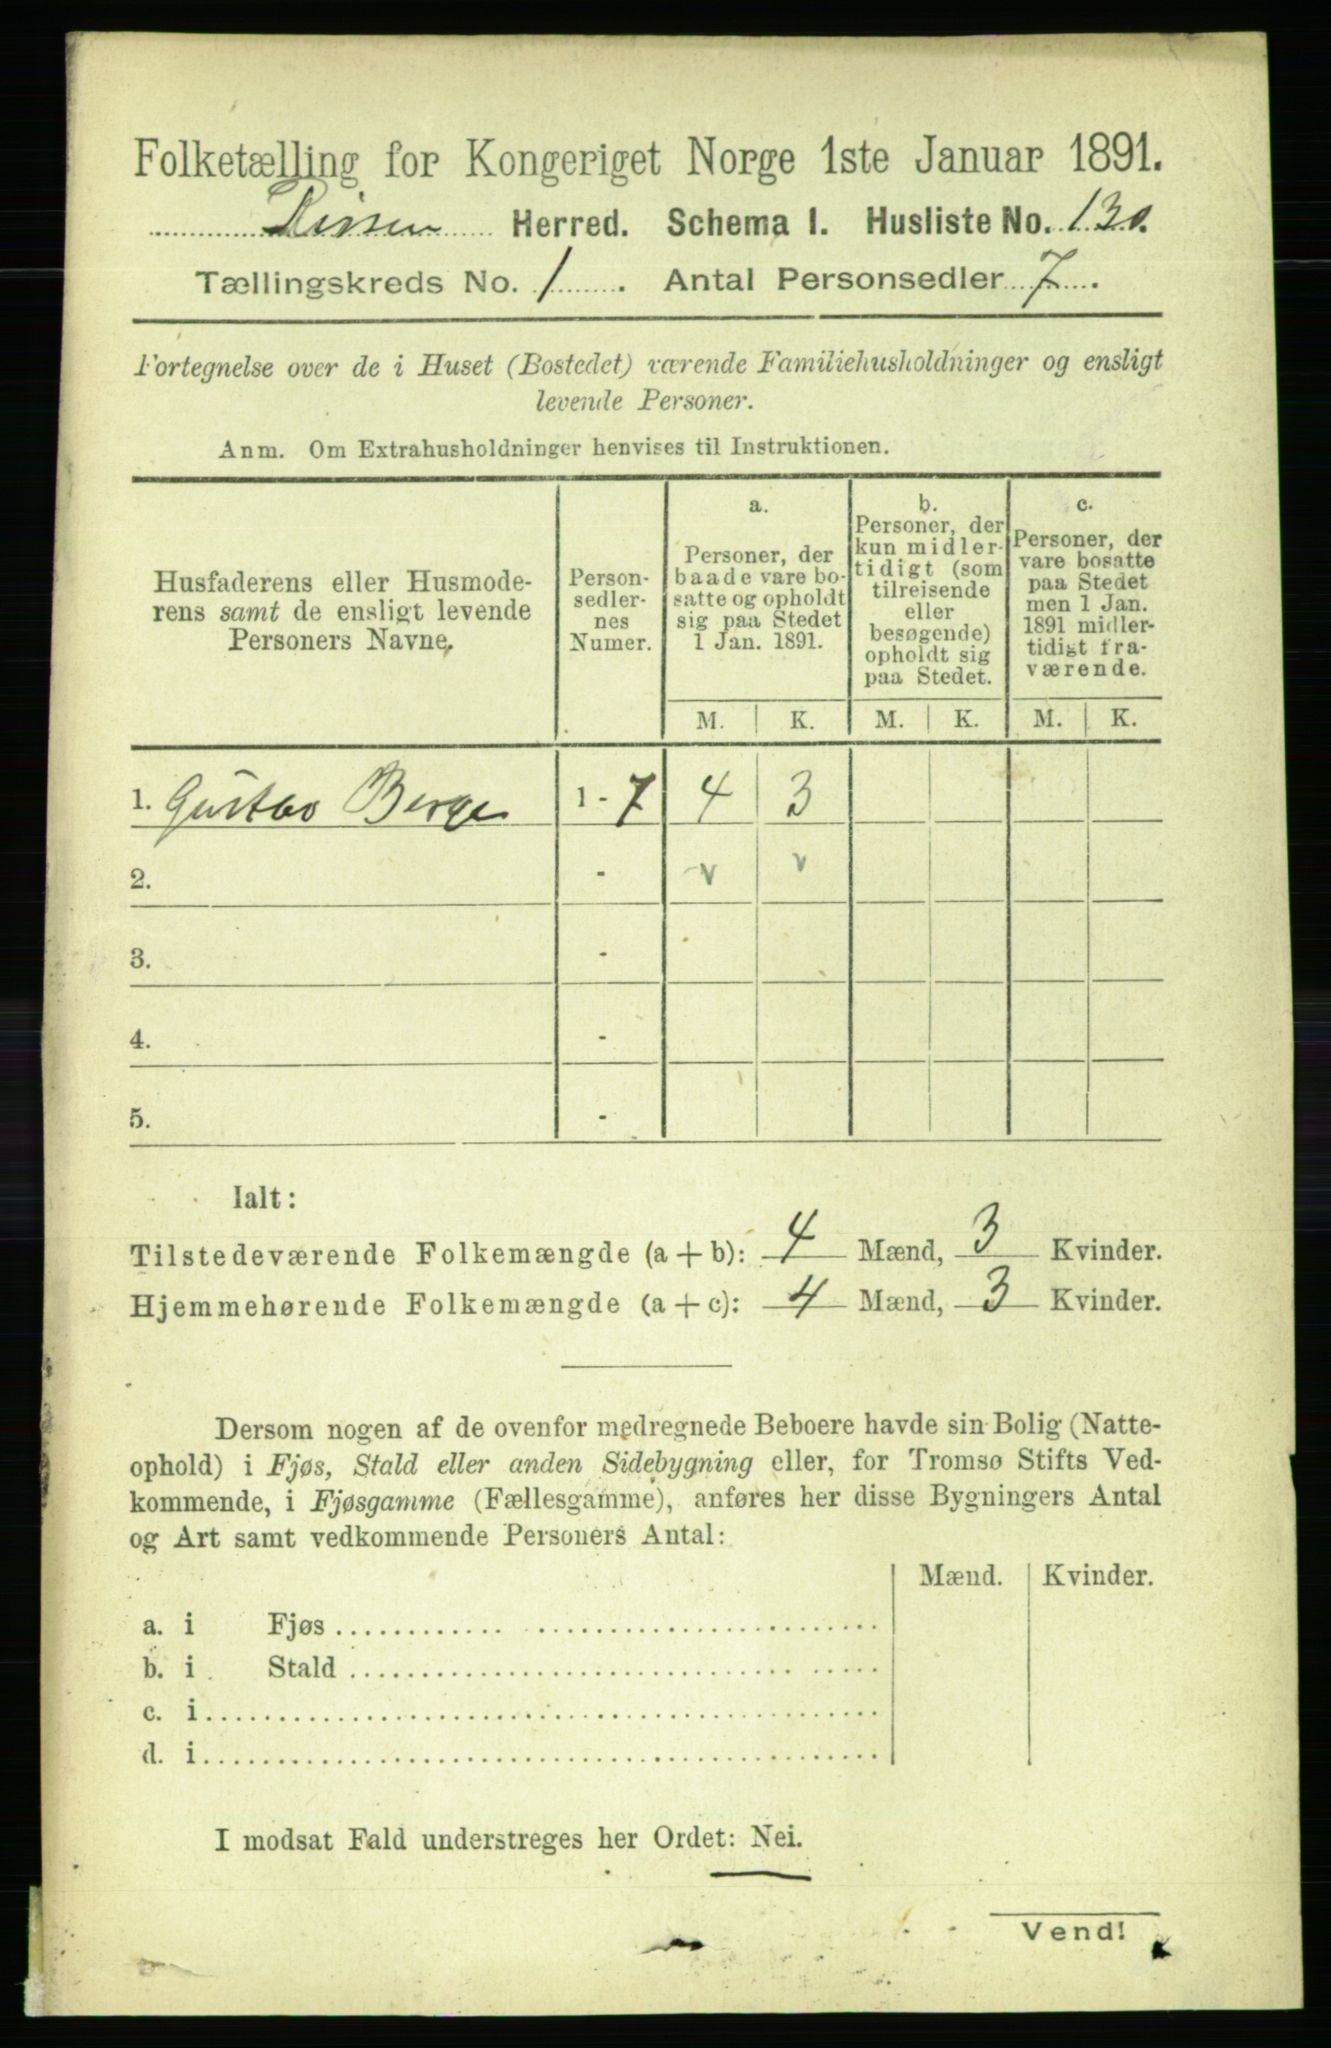 Folketælling for Kongeriget Norge 1ste Januar 1891.
Rissen Herred. Schema I. Husliste No. 130.
Tællingskreds No. 1. Antal Personsedler 7.
Fortegnelse over de i Huset (Bostedet) værende Familiehusholdninger og ensligt
levende Personer.
Anm. Om Extrahusholdninger henvises til Instruktionen.
Husfaderens eller Husmode-
rens samt de ensligt levende
Personers Navne.
Person-
sedler-
nes
Numer.
a.
Personer, der
baade vare bo-
satte og opholdt
sig paa Stedet
1 Jan. 1891.
b.
Personer, der
kun midler-
tidigt (som
tilreisende
eller
besøgende)
opholdt sig
paa Stedet.
c.
Personer, der
vare bosatte
paa Stedet
men 1 Jan.
1891 midler-
tidigt fra-
værende.
M. K. M. K. M. K.
1. Gustav Berge 1 - 7 4 3
2. - v v
3. -
4. -
5. -
Ialt:
Tilstedeværende Folkemængde (a + b): 4 Mænd, 3 Kvinder.
Hjemmehørende Folkemængde (a + c): 4 Mænd, 3 Kvinder.
Dersom nogen af de ovenfor medregnede Beboere havde sin Bolig (Natte-
ophold) i Fjøs, Stald eller anden Sidebygning eller, for Tromsø Stifts Ved-
kommende, i Fjøsgamme (Fællesgamme), anføres her disse Bygningers Antal
og Art samt vedkommende Personers Antal:
Mænd. Kvinder.
a. i Fjøs
b. i Stald
c. i
d. i
I modsat Fald understreges her Ordet: Nei.
Vend!